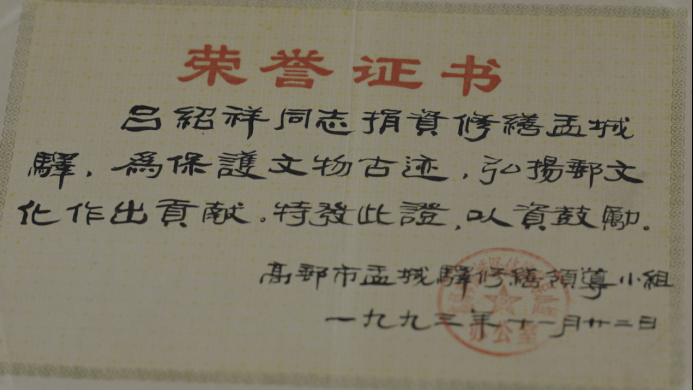 荣誉证书
吕紹祥同志捐資修繕盂城
驛，為保護文物古迹，弘揚郵文
化作出貢献。特發此證，以資鼓勵。
高郵市盂城驛修繕領導小組
一九九三年十一月廿二日
办公室